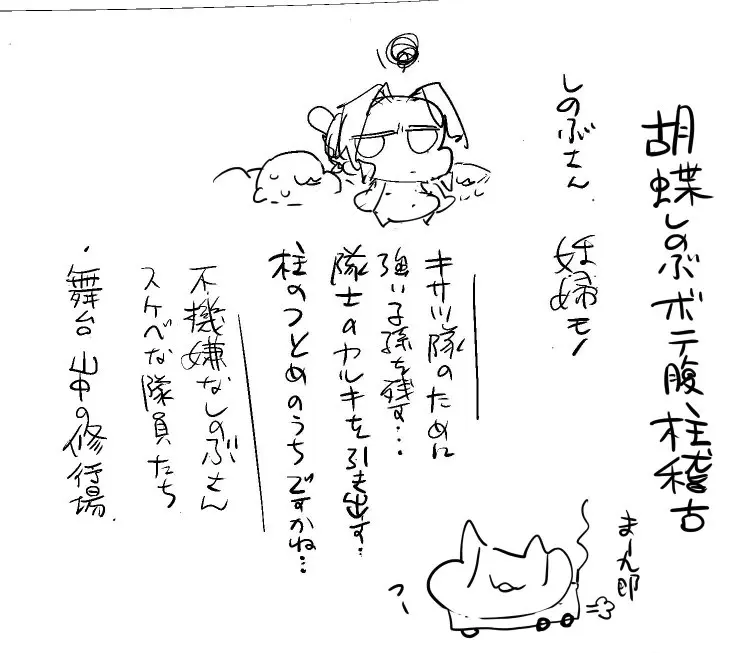 胡蝶しのぶボテ腹柱稽古
しのぶさん
妊婦モノ
キサツ隊のために
強い子孫を残す…
隊士のヤルキを引き出す…
柱のつとめのうちですかね…
不機嫌なしのぶさん
スケベな隊員たち
・舞台 山中の修行場.
まー九郎
つー